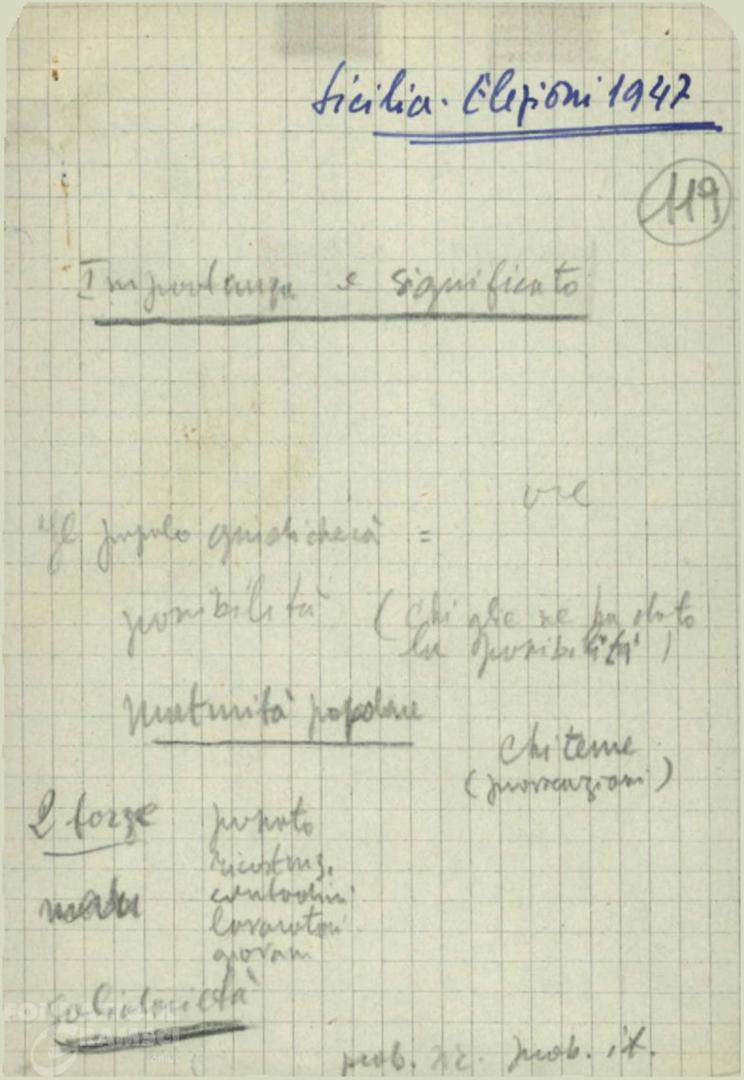 Sicilia. Elezioni 1947
119
Importanza e significato
Il popolo giudicherà =
possibilità (chi glie ne ha dato
la possibilità)
Maturità popolare
Chi teme
(provocazioni)
2 forze popolo
ricostruz.
contadini
lavoratori
giovani
solidarietà
prob. sic. prob. it.